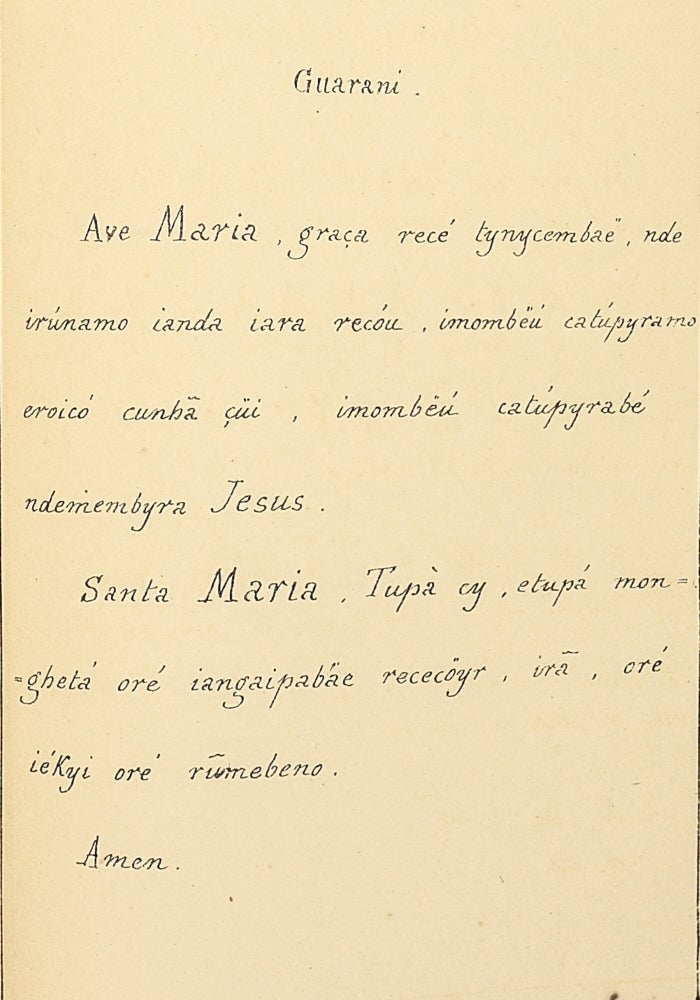 Guarani.
Ave Maria, graça recé tynycembaë, nde
irúnamo ianda iara recóu, imombëú catúpyramo
eroicó cunhã çüi, imombëú catúpyrabé
ndemembyra Jesus.
Santa Maria, Tupà cy, etupá mon=
=ghetá oré iangaipabäe rececöyr, irã, oré
iéKyi oré rũmebeno.
Amen.